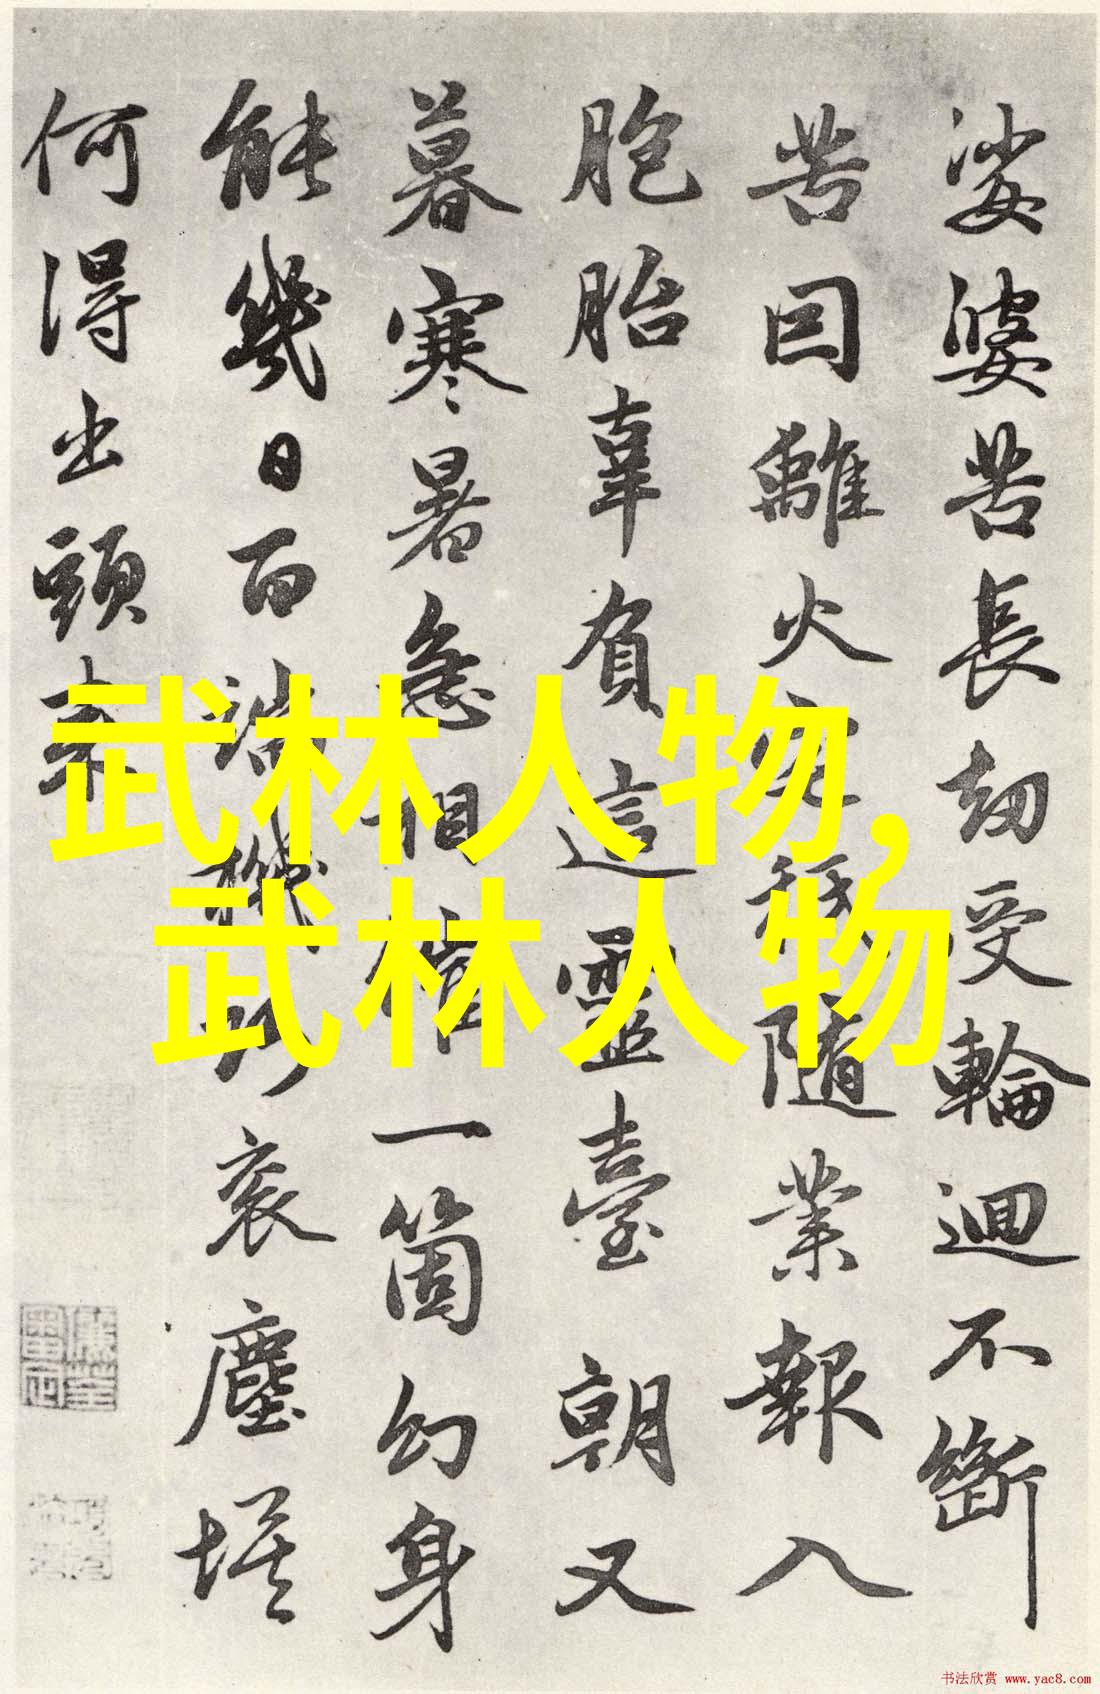 娑婆苦長劫受輪迴不斷
苦囙離火宅秖隨業報入
胞胎辜負這靈臺朝又
暮寒暑急相催一箇幻身
能幾日百端機巧衮塵埃
何得出頭來
武林人物,
武林人物
书法欣赏 www.yac8.com